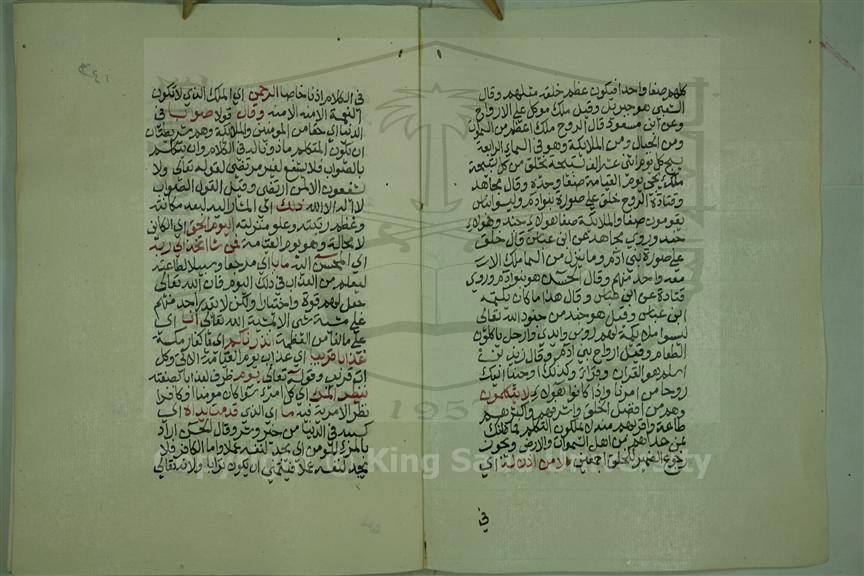 كلهم صفا واحدا فيكون عظم خلقه مثلهم وقال
الشعبي هو جبريل وقيل ملك موكل على الارواح
وعن ابن مسعود قال الروح ملك اعظم من السموات
ومن الجبال ومن الملائكة وهو في السماء الرابعة
يسبح كل يوم اثنى عشر الف تسبيحة يخلق من كل تسبيحة
ملك يجئ يوم القيامة صفا وحده وقال مجاهد
وقتادة الروح خلق على صورة بني ادم وليسوا بناس
يقومون صفا والملائكة صفا هولاء جند وهولاء
جند وروى مجاهد عن ابن عباس قال خلق
على صورة بني ادم وما ينزل من السماء ملك الا
معه واحد منهم وقال الحسن هو بنوادم وروى
قتادة عن ابن عباس وقال هذا مما كان يكتمه
ابن عباس وقيل هو جند من جنود الله تعالى
ليسوا ملائكة لهم رؤس وايدي وارجل ياكلون
الطعام وقيل ارواح بني ادم وقال زيد بن
اسلم هو القران وقرأ وكذلك اوحينا اليك
روحا من امرنا واذا كانوا هولاء لا يتكلمون
وهم من افضل الخلق واشرفهم واكثرهم
طاعة واقربهم منه لا يملكون التكلم فما ظنك
بمن عداهم من اهل السموات والارض ويجوز
رجوع الضمير للخلق اجمعين الا من اذن له اي
في
في الكلام اذنا خاصا الرحمن اي الملك الذي لا تكون
نعمة الا منه وقال قولا صوابا في
الدنيا اي حقا من المومنين والملائكة وهما شريطتان
ان يكون المتكلم ماذونا له في الكلام وان يتكلم
بالصواب فلا يشفع لغير مرتضى لقوله تعالى ولا
يشفعون الا لمن ارتضى وقيل القول الصواب
لا اله الا الله ذلك اي المشار اليه لبعد مكانته
وعظم رتبته وعلو منزلته اليوم الحق اي الكائن
لا محالة وهو يوم القيامة فمن شا اتخذ الى ربه
اي المحسن اليه مابا اي مرجعا وسبيلا لطاعته
ليسلم من العذاب في ذلك اليوم فان الله تعالى
جعل لهم قوة واختيارا ولكن لا يقدر احد منهم
على مشيئة شئ الا بمشيئة الله تعالى انا اي
على مالنا من العظمة انذرناكم اي كفار مكة
عذابا قريبا اي عذاب يوم القيامة الاتي وكل
ات قريب وقوله تعالى يوم ظرف لعذابا بصفته
ينظر المرء اي كل امرئ سوا كان مومنا او كافرا
نظر الا مرية فيه ما اي الذي قدمت يداه اي
كسبه في الدنيا من خير وشر وقال الحسن اراد
بالمرء المومن اي يجد لنفسه عملا واما الكافر فلا
يجد لنفسه عملا فيتمنى ان يكون ترابا ولانه تعالى
1957
King Saud University